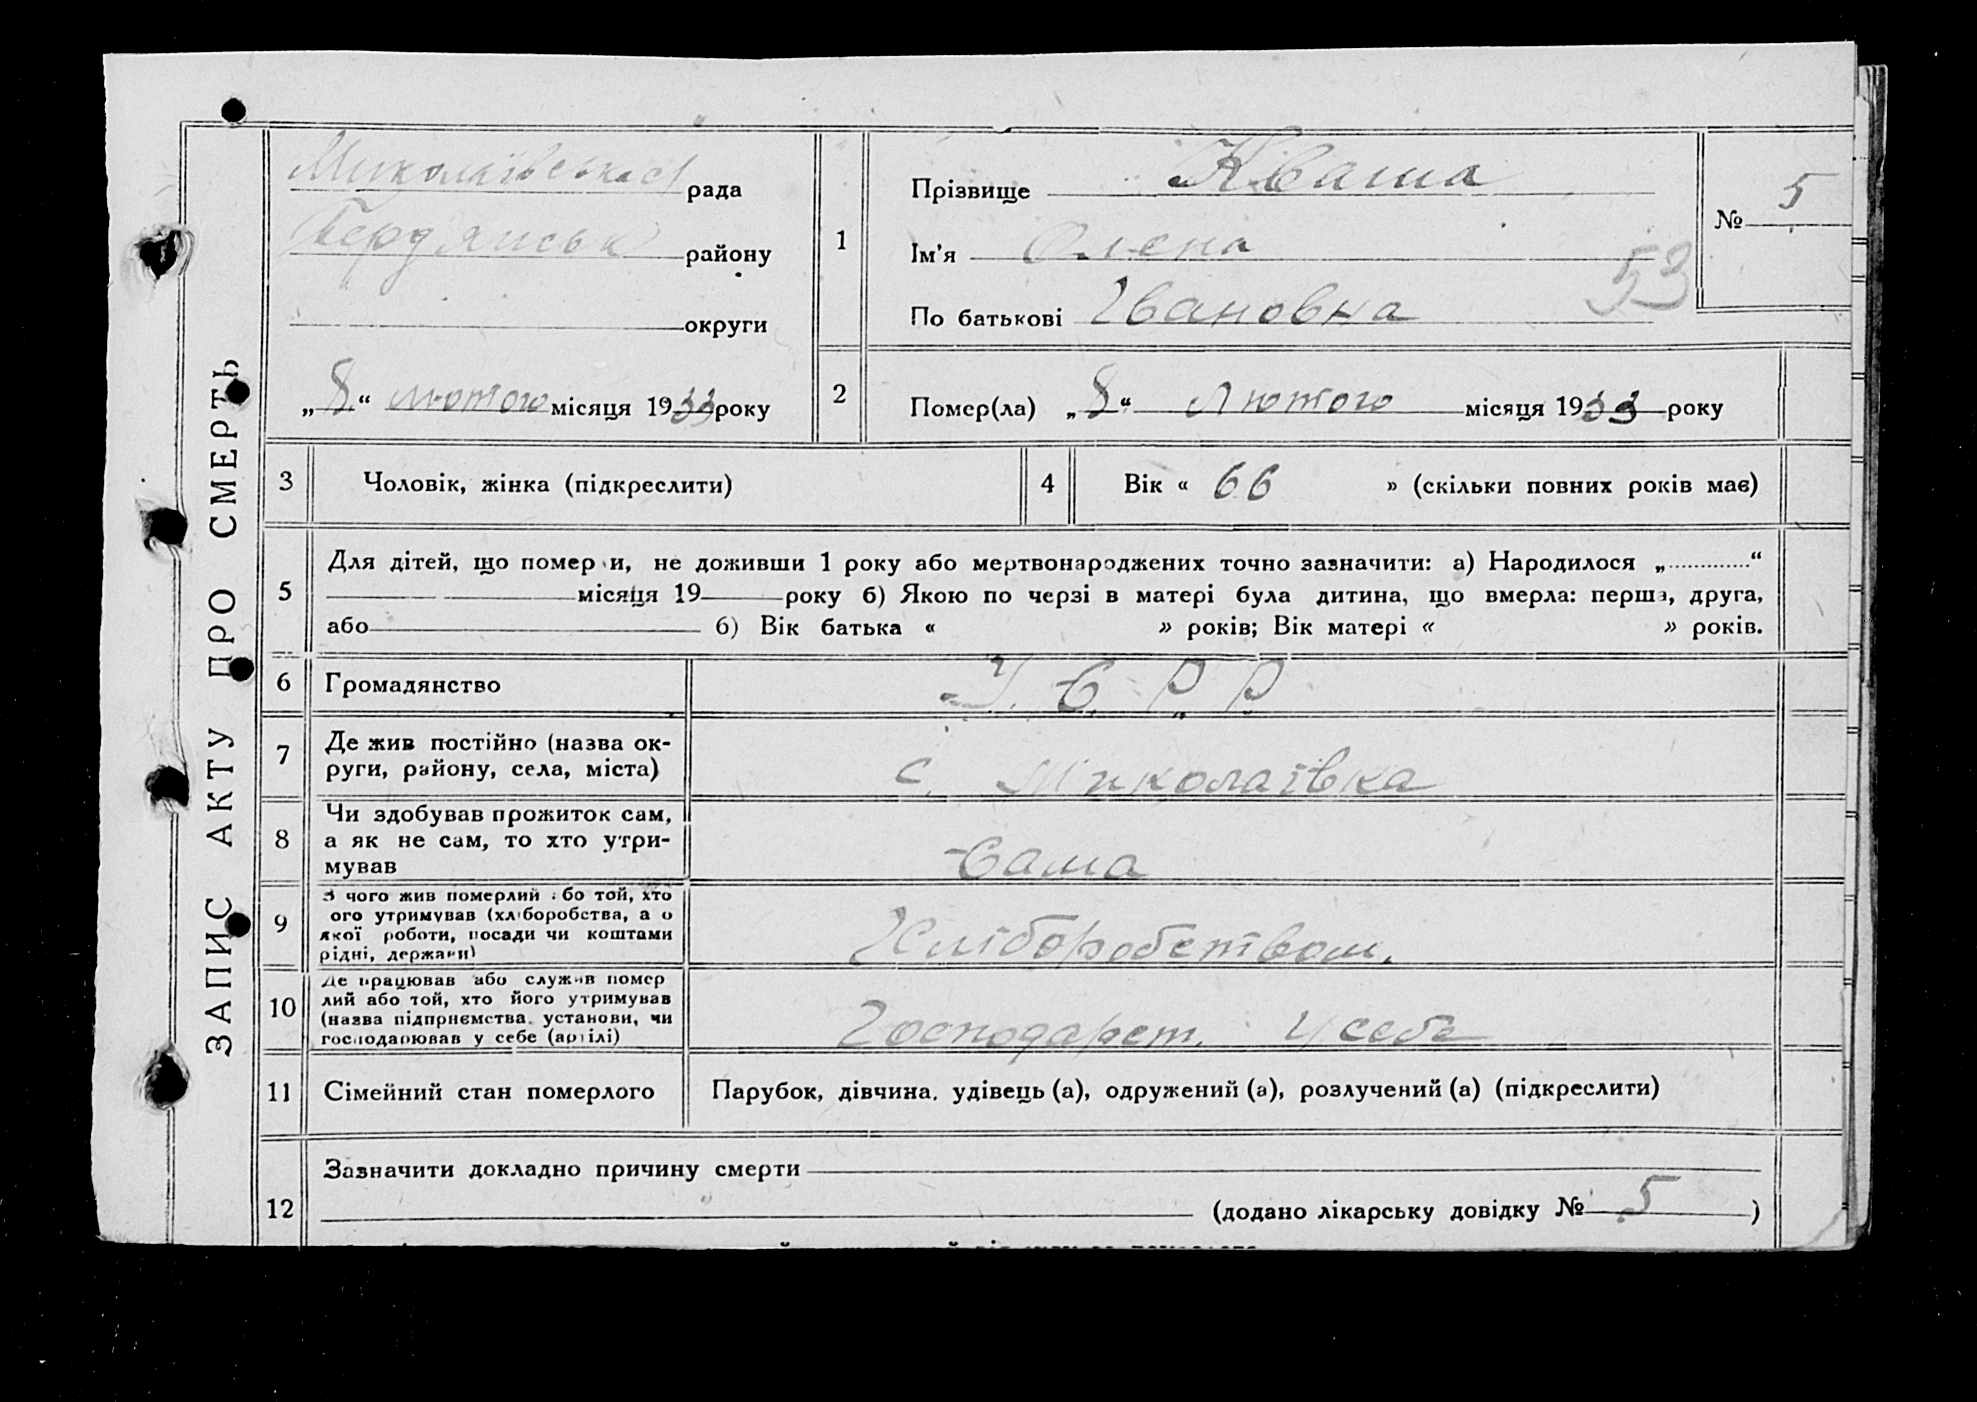 ЗАПИС АКТУ ПРО СМЕРТЬ
Миколаївська рада
Бердянськ району
округи
„8“ лютого місяця 1933 року
1
Прізвище Кваша
Ім'я Олена
По батькові Івановна
№ 5
53
2
Помер(ла) „8“ Лютого місяця 1933 року
3 Чоловік, жінка (підкреслити)
4 Вік « 66 » (скільки повних років має)
5
Для дітей, що помер и, не доживши 1 року або мертвонароджених точно зазначити: а) Народилося „ “
місяця 19 року б) Якою по черзі в матері була дитина, що вмерла: перша, друга,
або б) Вік батька « » років; Вік матері « » років.
6 Громадянство У. С. Р. Р.
7 Де жив постійно (назва ок-
руги, району, села, міста)
с. Миколаївка
8 Чи здобував прожиток сам,
а як не сам, то хто утри-
мував
Сама
9 З чого жив померлий бо той, хто
ого утримував (хліборобства, а о
якої роботи, посади чи коштами
рідні, держави)
Хліборобством.
10 Де працював або служив помер
лий або той, хто його утримував
(назва підприємства, установи, чи
господарював у себе (артілі)
Господарст. у себе
11 Сімейний стан померлого Парубок, дівчина, удівець (а), одружений (а), розлучений (а) (підкреслити)
12 Зазначити докладно причину смерти
(додано лікарську довідку № 5 )